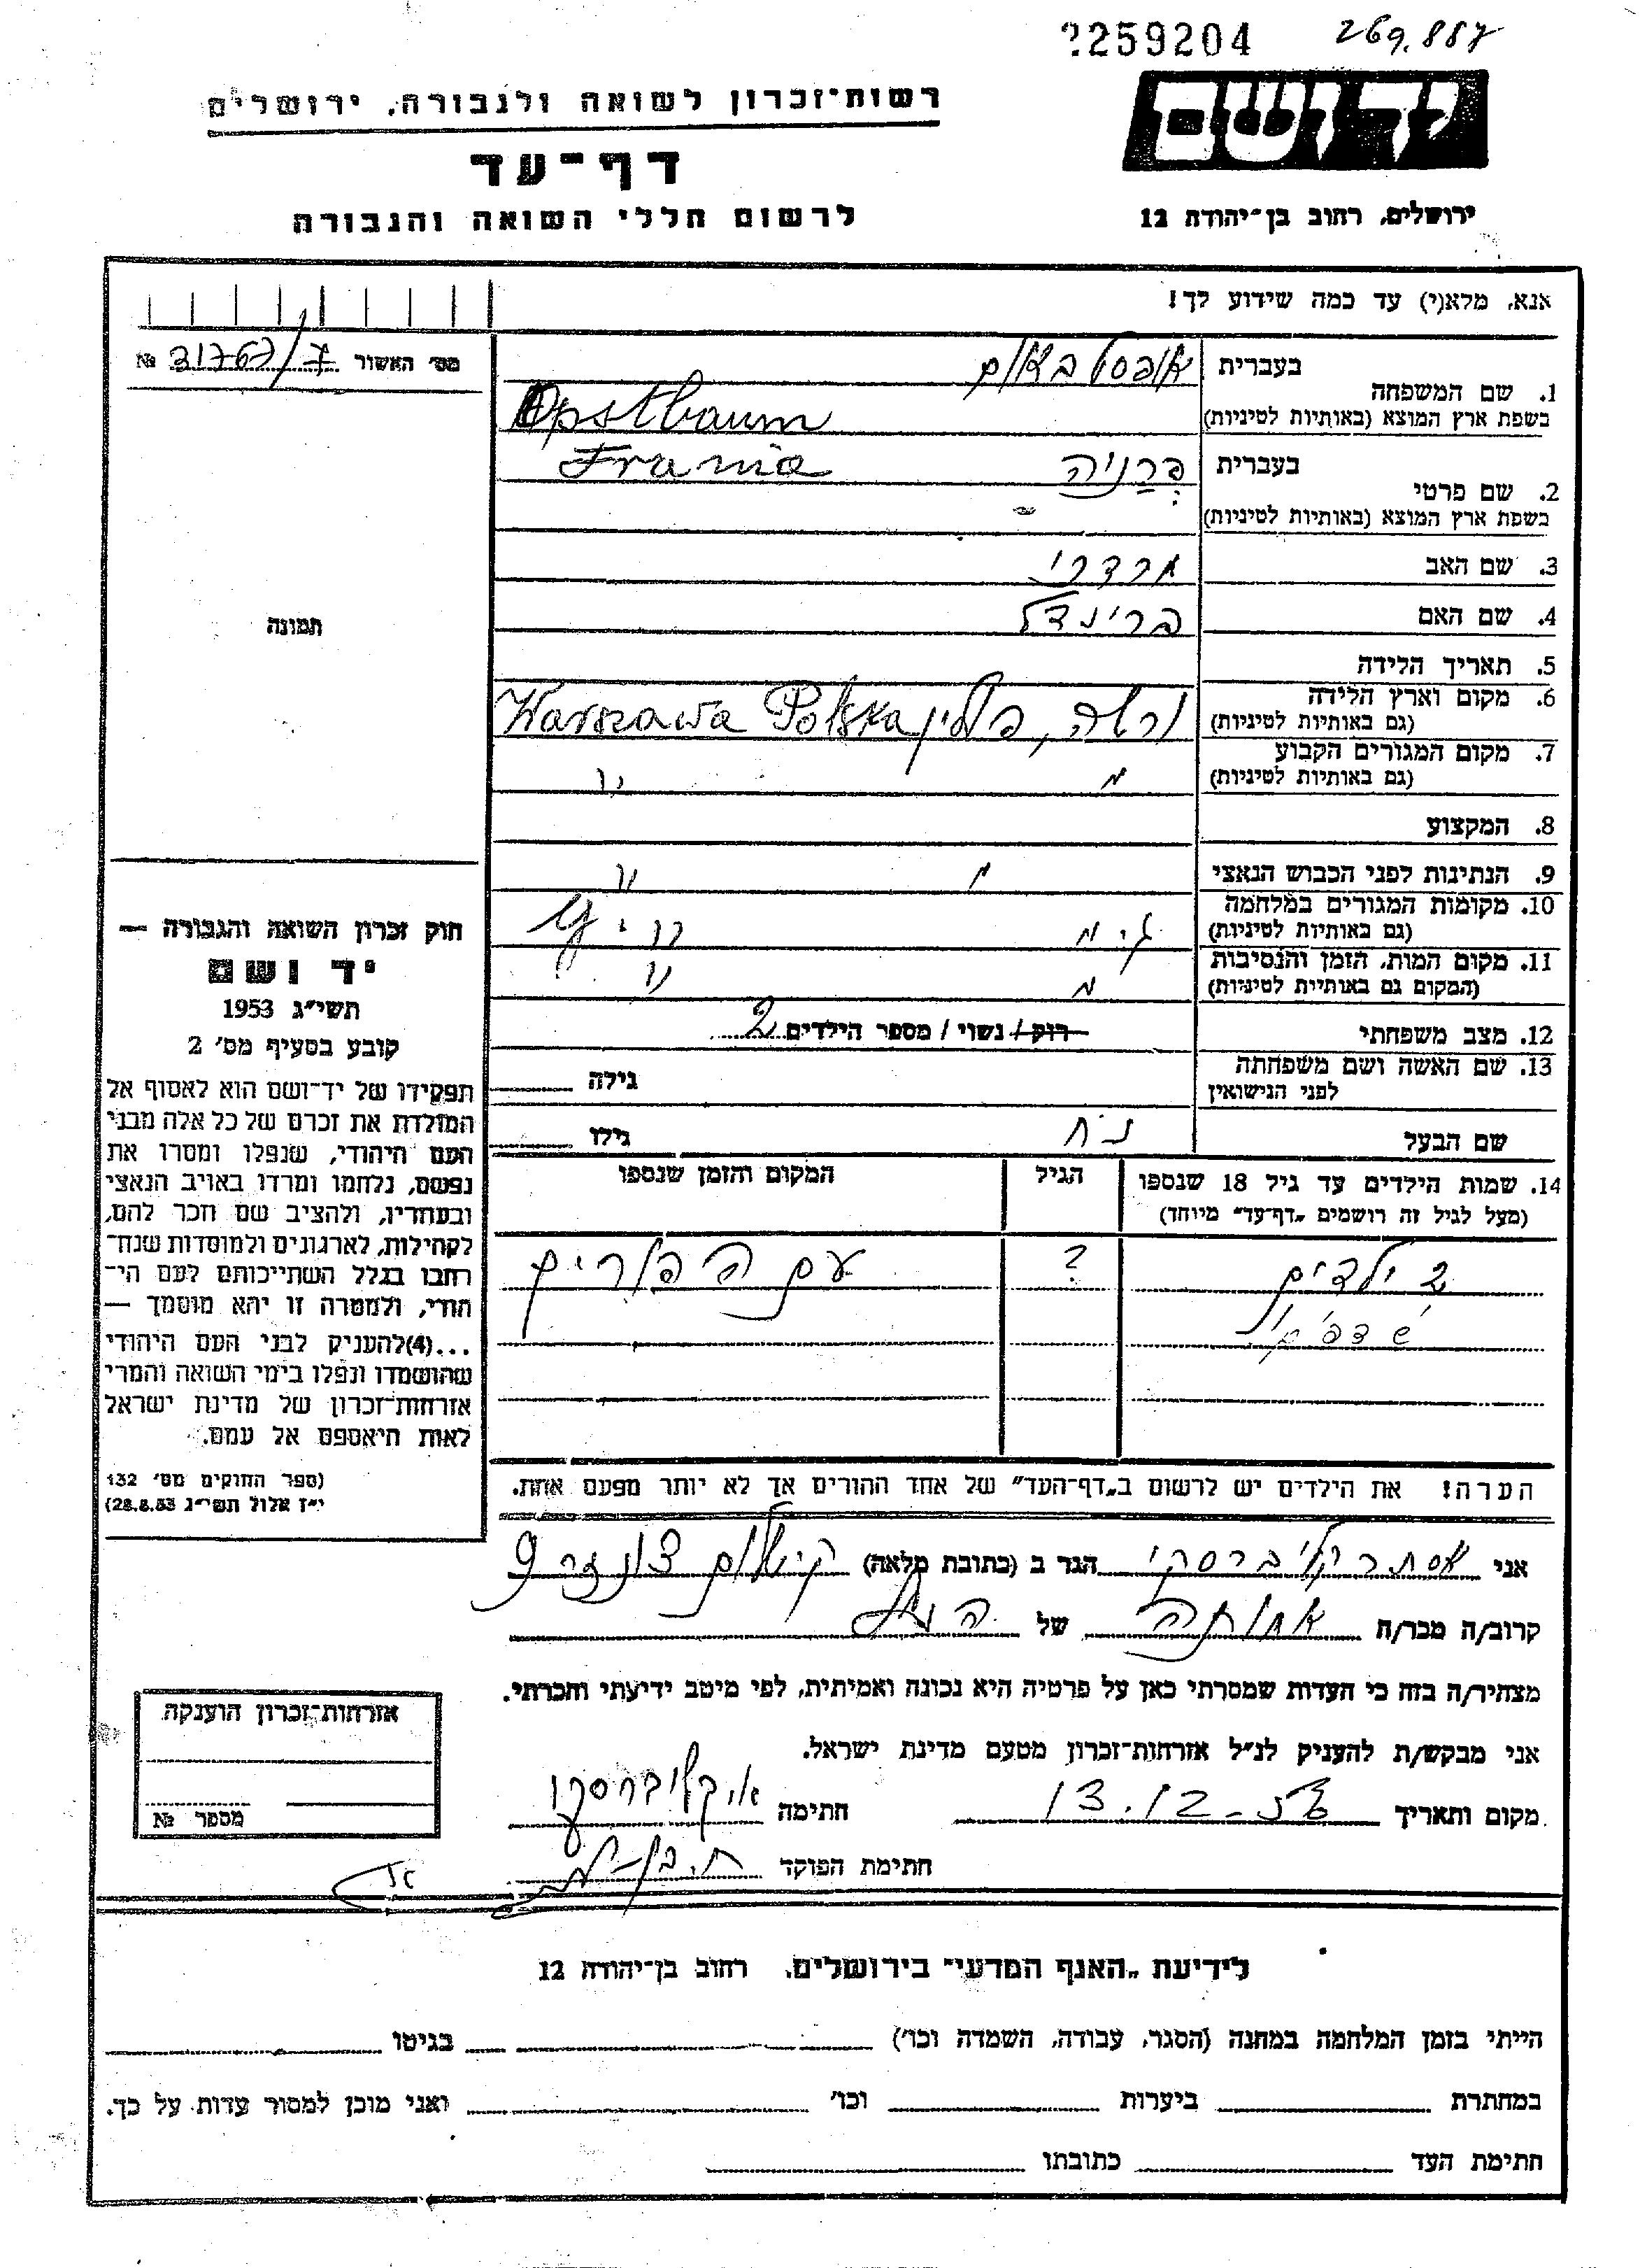 259204 269.887
ידושם
רשות־זכרון לשואה ולגבורה, ירושלים
דף־עד
לרשום חללי השואה והגבורה
ירושלים, רחוב בן־יהודה 12
אנא, מלא(י) עד כמה שידוע לך!
מס' האשור 31767/7 №
תמונה
1. שם המשפחה
בעברית אופסטבאום
בשפת ארץ המוצא (באותיות לטיניות) Opstbaum
2. שם פרטי
בעברית פרניה Frania
בשפת ארץ המוצא (באותיות לטיניות)
3. שם האב
4. שם האם בריינדל
5. תאריך הלידה
6. מקום וארץ הלידה
(גם באותיות לטיניות) ורשה, פולין Warszawa Polska
7. מקום המגורים הקבוע
(גם באותיות לטיניות) " "
8. המקצוע
9. הנתינות לפני הכבוש הנאצי " "
10. מקומות המגורים במלחמה
(גם באותיות לטיניות)
11. מקום המות, הזמן והנסיבות
(המקום גם באותיות לטיניות) " "
12. מצב משפחתי רווק / נשוי / מספר הילדים 2
13. שם האשה ושם משפחתה
לפני הנישואין גילה
שם הבעל נח גילו
14. שמות הילדים עד גיל 18 שנספו
(מעל לגיל זה רושמים „דף־עד" מיוחד)
הגיל
המקום והזמן שנספו
2 ילדים ? עם ההורים
הערה! את הילדים יש לרשום ב„דף־העד" של אחד ההורים אך לא יותר מפעם אחת.
חוק זכרון השואה והגבורה —
יד ושם
תשי"ג 1953
קובע בסעיף מס' 2
תפקידו של יד־ושם הוא לאסוף אל
המולדת את זכרם של כל אלה מבני
העם היהודי, שנפלו ומסרו את
נפשם, נלחמו ומרדו באויב הנאצי
ובעוזריו, ולהציב שם וזכר להם,
לקהילות, לארגונים ולמוסדות שנח־
רבו בגלל השתייכותם לעם הי־
הודי, ולמטרה זו יהא מוסמך —
...(4) להעניק לבני העם היהודי
שהושמדו ונפלו בימי השואה והמרי
אזרחות־זכרון של מדינת ישראל
לאות היאספם אל עמם.
(ספר החוקים מס' 132
י"ז אלול תשי"ג 28.8.53)
אני אסתר קליברסקי הגר ב (כתובת מלאה)
קרוב/ה מכר/ה אחותה של הנ"ל
מצהיר/ה בזה כי העדות שמסרתי כאן על פרטיה היא נכונה ואמיתית, לפי מיטב ידיעתי והכרתי.
אני מבקש/ת להעניק לנ"ל אזרחות־זכרון מטעם מדינת ישראל.
מקום ותאריך 13.12.55 חתימה א. קליברסקי
חתימת הפוקד
אזרחות־זכרון הוענקה
מספר №
לידיעת „האגף המדעי" בירושלים, רחוב בן־יהודה 12
הייתי בזמן המלחמה במחנה (הסגר, עבודה, השמדה וכו') בגיטו
במחתרת ביערות וכו' ואני מוכן למסור עדות על כך.
חתימת העד כתובתו